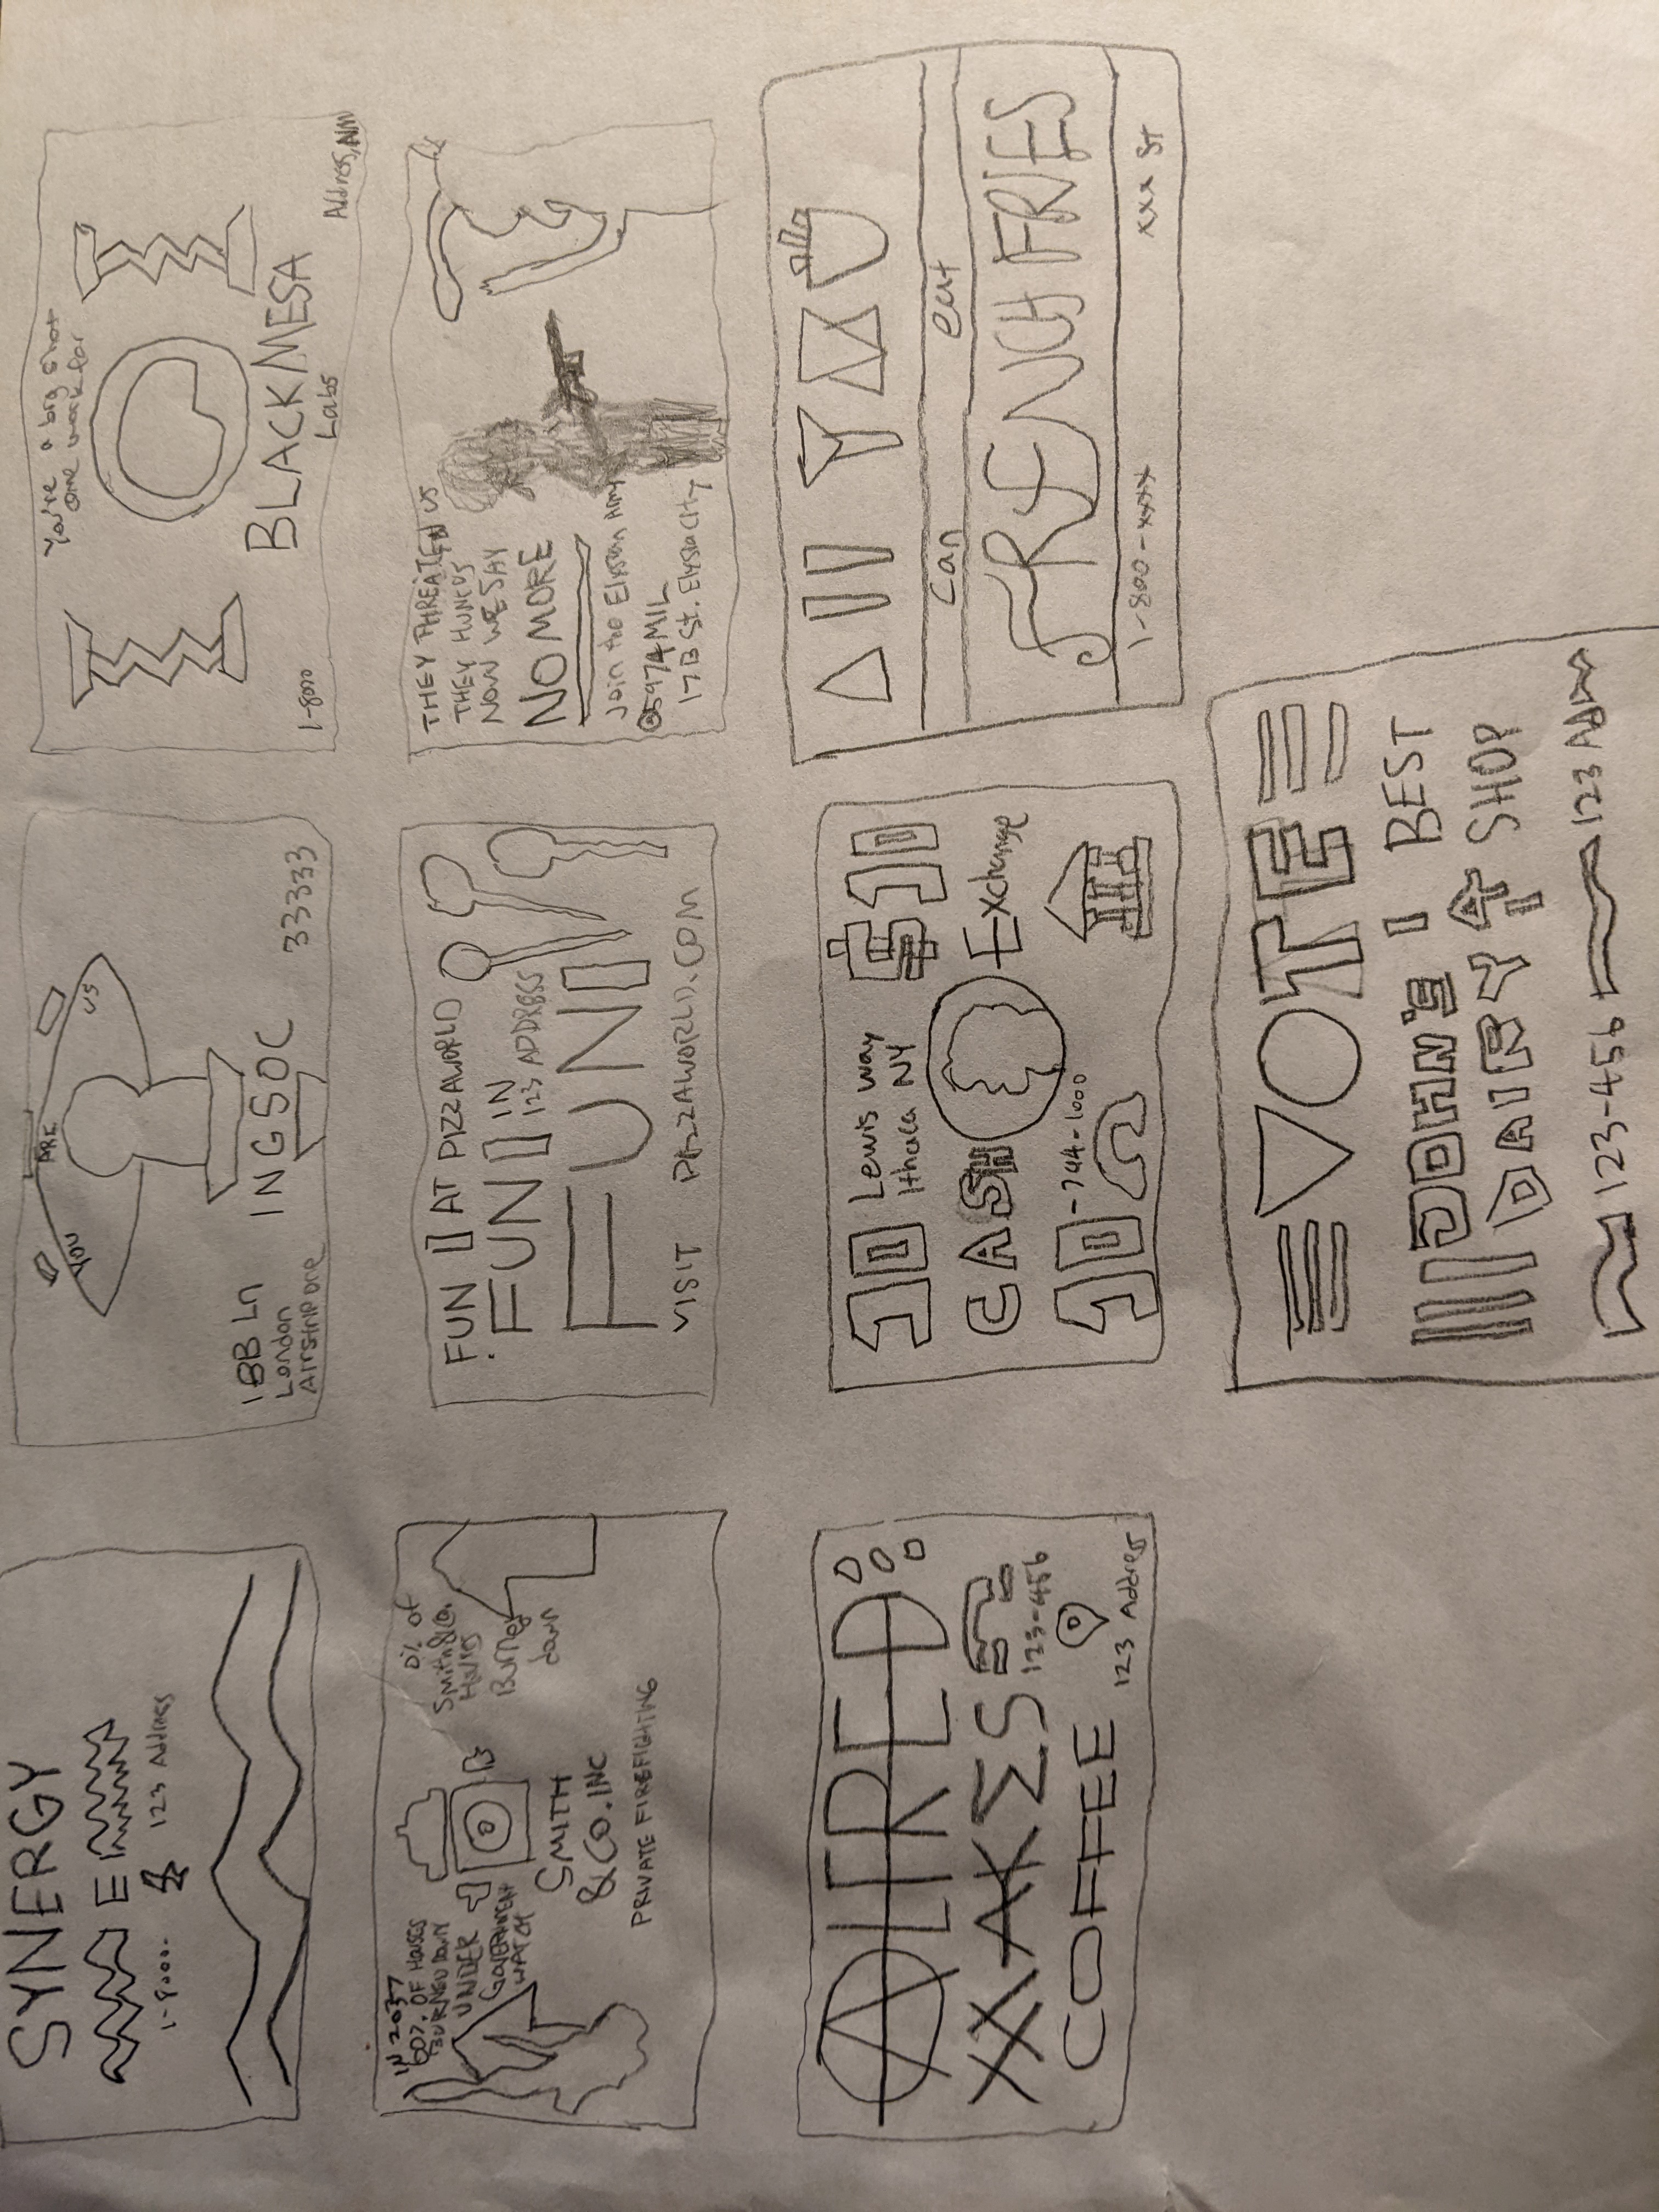 SYNERGY
E
1-8000-
123 Address
YOU ARE US
18B Ln
London
Airstrip one
INGSOC
33333
You're a big shot
one work for
BLACK MESA
Labs
1-8000
Address, NM
IN 2037
60% OF HOUSES
BURNED DOWN
UNDER
GOVERNMENT
WATCH
SMITH
& CO. INC
PRIVATE FIREFIGHTING
0% of
Smith & Co.
Houses
Burned
down
FUN AT PIZZAWORLD
FUN IN
123 ADDRESS
FUN
VISIT PIZZAWORLD.COM
THEY THREATEN US
THEY HUNT US
NOW WE SAY
NO MORE
Join the Elysian Army
@5974MIL
17B St. Elysia City
ALFRED
MAKES
COFFEE
123-456
123 Address
10
Lewis way
Ithaca NY
$10
CASH Exchange
10-744-1000
All YOU
can eat
FRENCH FRIES
1-800-xxxx
xxx St
VOTE
JOHN'S
DAIRY
4
BEST
SHOP
123-456
123